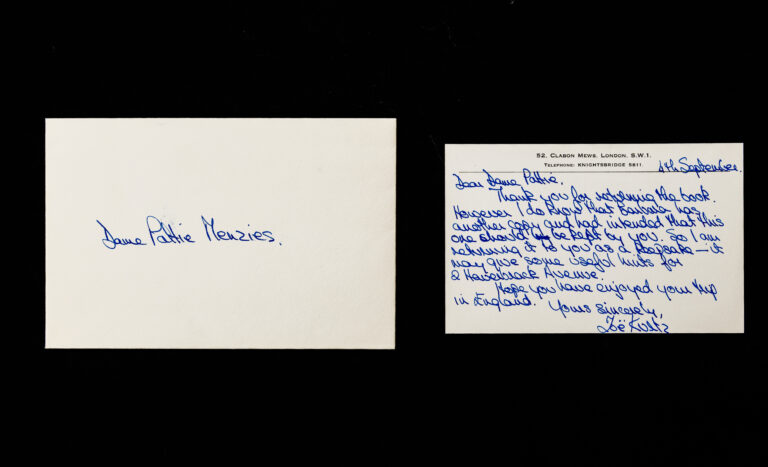 Dame Pattie Menzies.
52, CLABON MEWS, LONDON, S.W.1.
TELEPHONE: KNIGHTSBRIDGE 5811.
4th September.
Dear Dame Pattie,
Thank you for returning the book.
However I do know that Barbara has
another copy and had intended that this
one should be kept by you. So I am
returning it to you as a keepsake – it
may give some useful hints for
2 Haverbrack Avenue.
Hope you have enjoyed your trip
in England. Yours sincerely,
Zoë